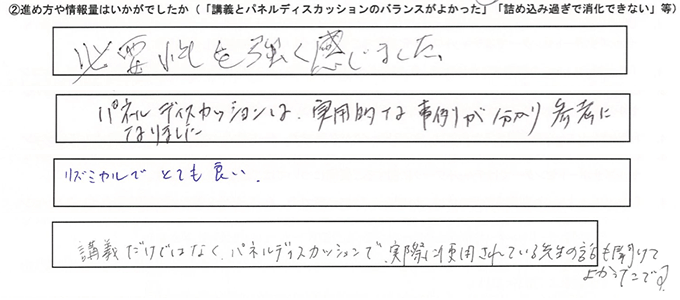 ②進め方や情報量はいかがでしたか(「講義とパネルディスカッションのバランスがよかった」「詰め込み過ぎで消化できない」等)
必要性を強く感じました。
パネルディスカッションは、実用的な事例が分かり参考に
なりました
リズミカルでとても良い。
講義だけではなく、パネルディスカッションで、実際に使用されている先生の話も聞けて
よかったです。